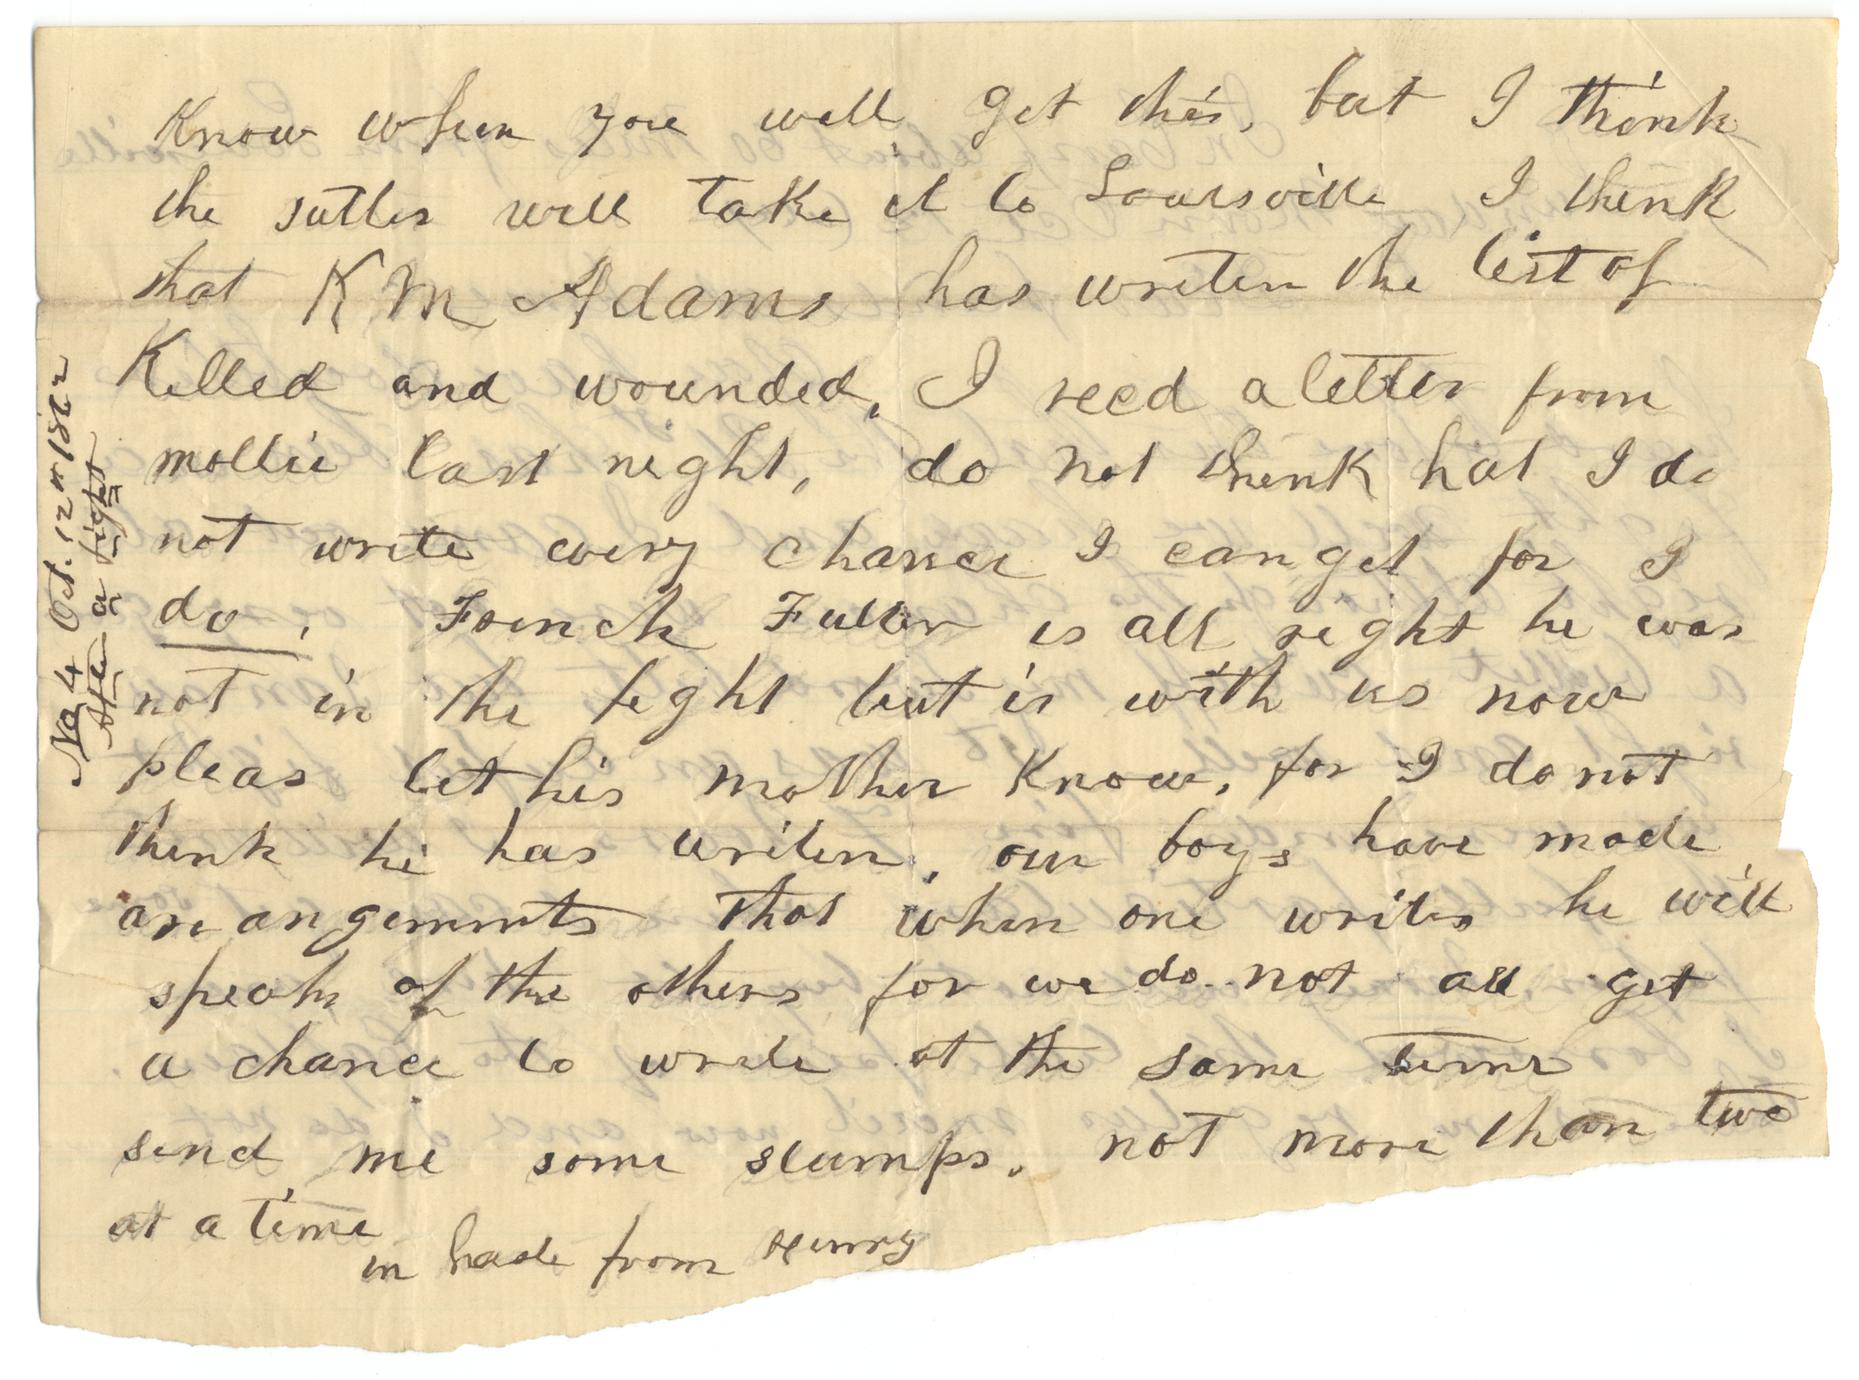 Know when you will get this, but I think
the sutler will take it to Louisville I think
that K M Adams has writen the list of
Killed and wounded, I recd a letter from
mollie last night, do not think hat I do
not write every chance I can get for I
do, French Fuller is all right he was
not in the fight but is with us now
pleas let his mother Know, for I do not
think he has writen, our boys have made
areangements that when one writes he will
speak of the others for we do not all get
a chance to write at the same time
send me some stamps, not more than two
at a time
in haste from Henry
No 4 Oct. 12th 1862
After a fight